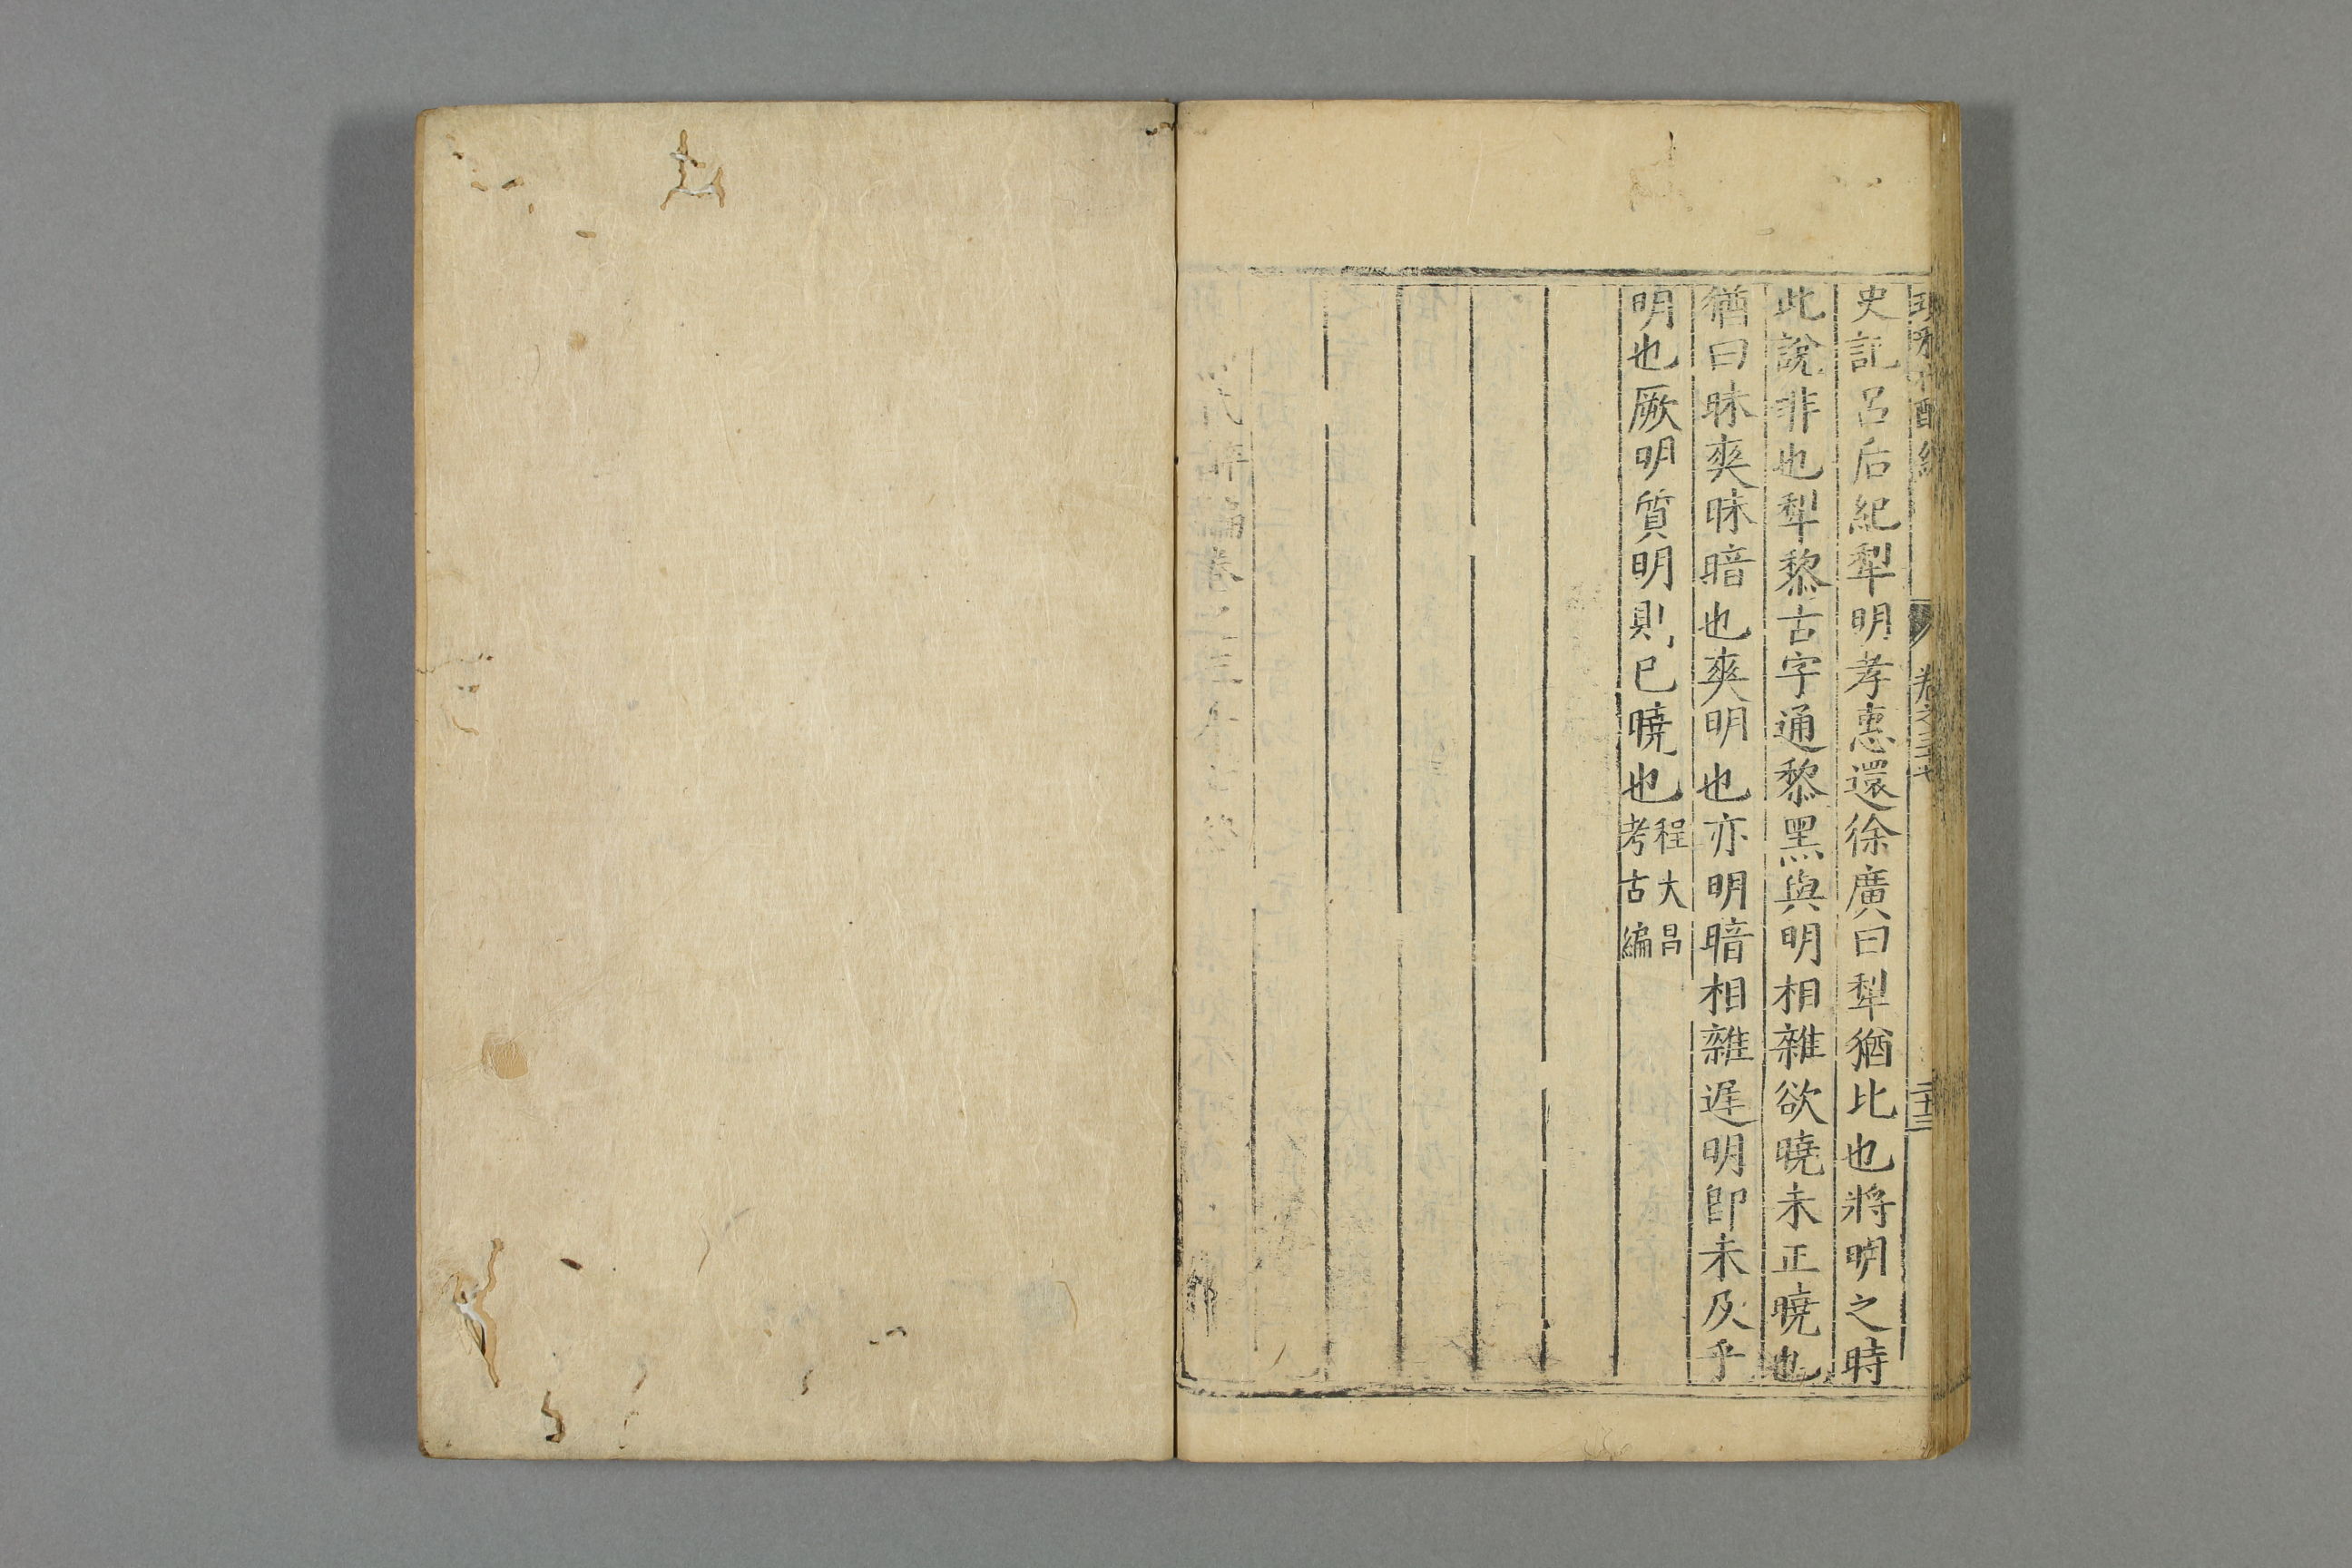 卷之三十七
二十二
史記呂后紀犁明孝惠還徐廣曰犁猶比也將明之時
此說非也犁黎古字通黎黑與明相雜欲曉未正曉也
猶曰昧爽昧暗也爽明也亦明暗相雜遲明即未及乎
明也厥明質明則已曉也程大昌
考古編